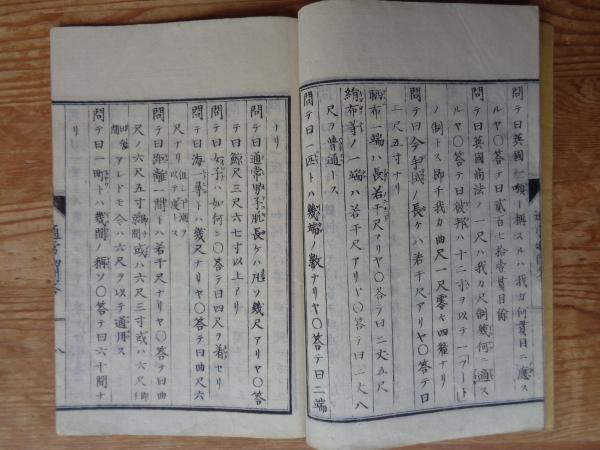 問テ曰英國一噸ト稱スルハ我カ何貫目ニ應ス
ルヤ〇答テ曰貳百七拾壹貫目餘
問テ曰英國商法ノ一尺ハ我カ尺制幾何ニ適ス
ルヤ〇答テ曰彼邦ハ十二寸ヲ以テ一フート
ノ制トス即チ我カ曲尺一尺零々四釐ナリ
問テ曰今手拭ノ長ケハ若干尺アリヤ〇答テ曰
二尺五寸ナリ
晒布一端ハ長若干尺アリヤ〇答テ曰二丈五尺
絹布等ノ一端ハ若干尺アリヤ〇答テ曰二丈八
尺ヲ普通トス
問テ曰一匹トハ幾端ノ數ナリヤ〇答テ曰二端
ナリ
問テ曰通常男子ノ肌長ケハ凡ソ幾尺アリヤ〇答
テ曰鯨尺三尺六七寸以上アリ
問テ曰女子ハ如何ニ〇答テ曰四尺ヲ着セリ
問テ曰海一尋トハ幾尺ナリヤ〇答テ曰曲尺六
尺ナリ
問テ曰距離一間トハ若干尺ナリヤ〇答テ曰曲
尺ノ六尺五寸或ハ六尺三寸或ハ六尺
アレドモ今ハ六尺ヲ以テ通用ス
問テ曰一町トハ幾間ノ稱ソ〇答テ曰六十間ナ
リ
八